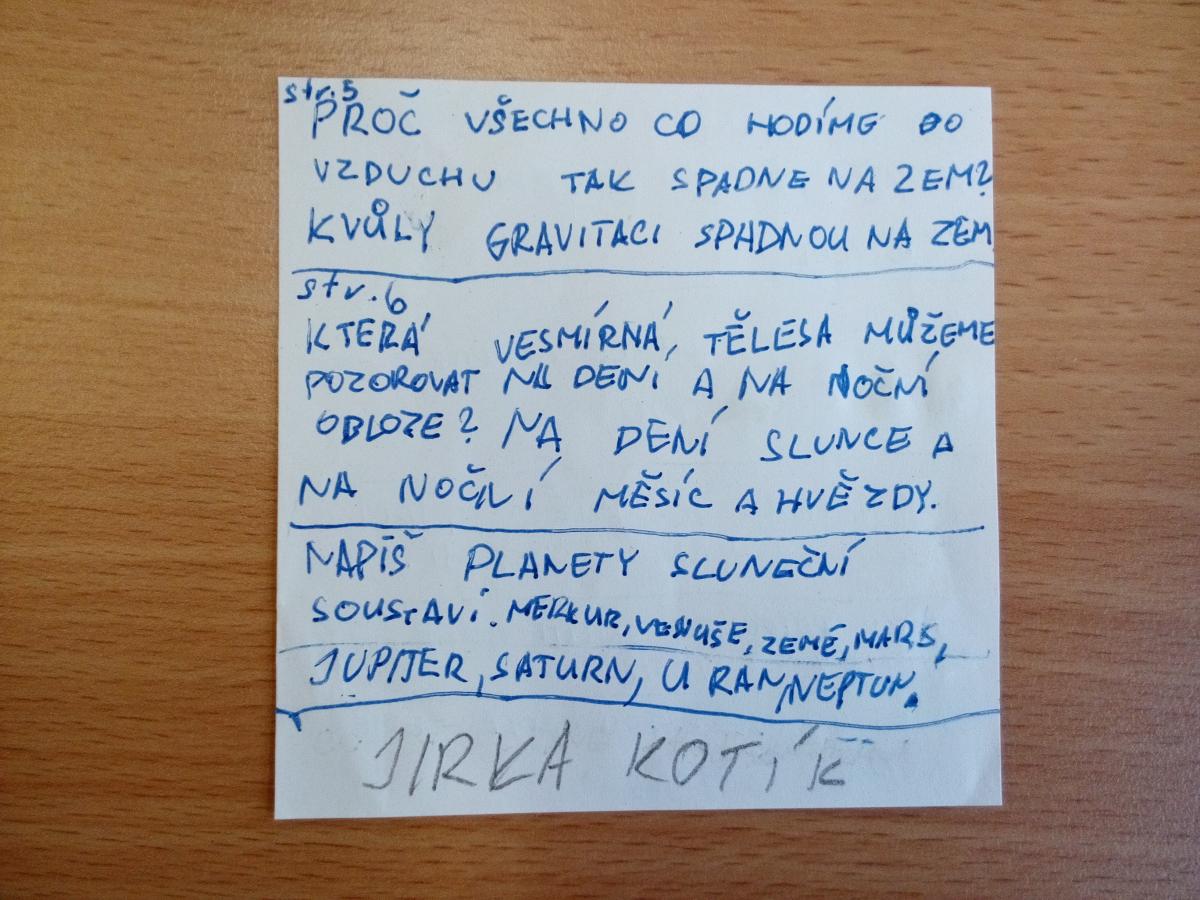 str.5
PROČ VŠECHNO CO HODÍME DO
VZDUCHU TAK SPADNE NA ZEM?
KVŮLY GRAVITACI SPADNOU NA ZEM
str.6
KTERÁ VESMÍRNÁ, TĚLESA MŮŽEME
POZOROVAT NA DENI A NA NOČNÍ
OBLOZE? NA DENÍ SLUNCE A
NA NOČNÍ MĚSÍC A HVĚZDY.
NAPIŠ PLANETY SLUNEČNÍ
SOUSTAVÍ. MERKUR, VENUŠE, ZEMÉ, MARS,
JUPITER, SATURN, URAN, NEPTUN.
JIRKA KOTÍK